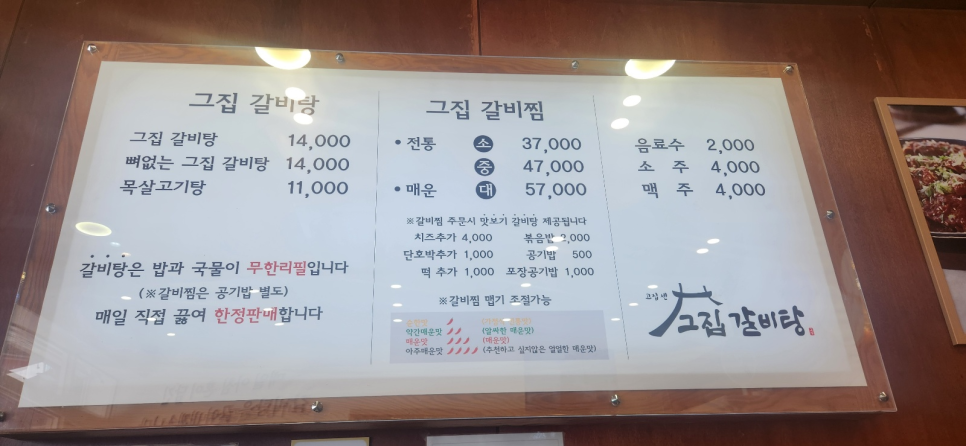 그집 갈비탕
그집 갈비탕 14,000
뼈없는 그집 갈비탕 14,000
목살고기탕 11,000
갈비탕은 밥과 국물이 무한리필입니다
(※갈비찜은 공기밥 별도)
매일 직접 끓여 한정판매합니다
그집 갈비찜
• 전통 소 37,000
중 47,000
• 매운 대 57,000
※갈비찜 주문시 맛보기 갈비탕 제공됩니다
치즈추가 4,000 볶음밥 2,000
단호박추가 1,000 공기밥 500
떡 추가 1,000 포장공기밥 1,000
※갈비찜 맵기 조절가능
약간매운맛 (얼싸한 매운맛)
매운맛 (매운맛)
아주매운맛 (추천하고 싶지않은 얼얼한 매운맛)
음료수 2,000
소 주 4,000
맥 주 4,000
그집 갈비탕